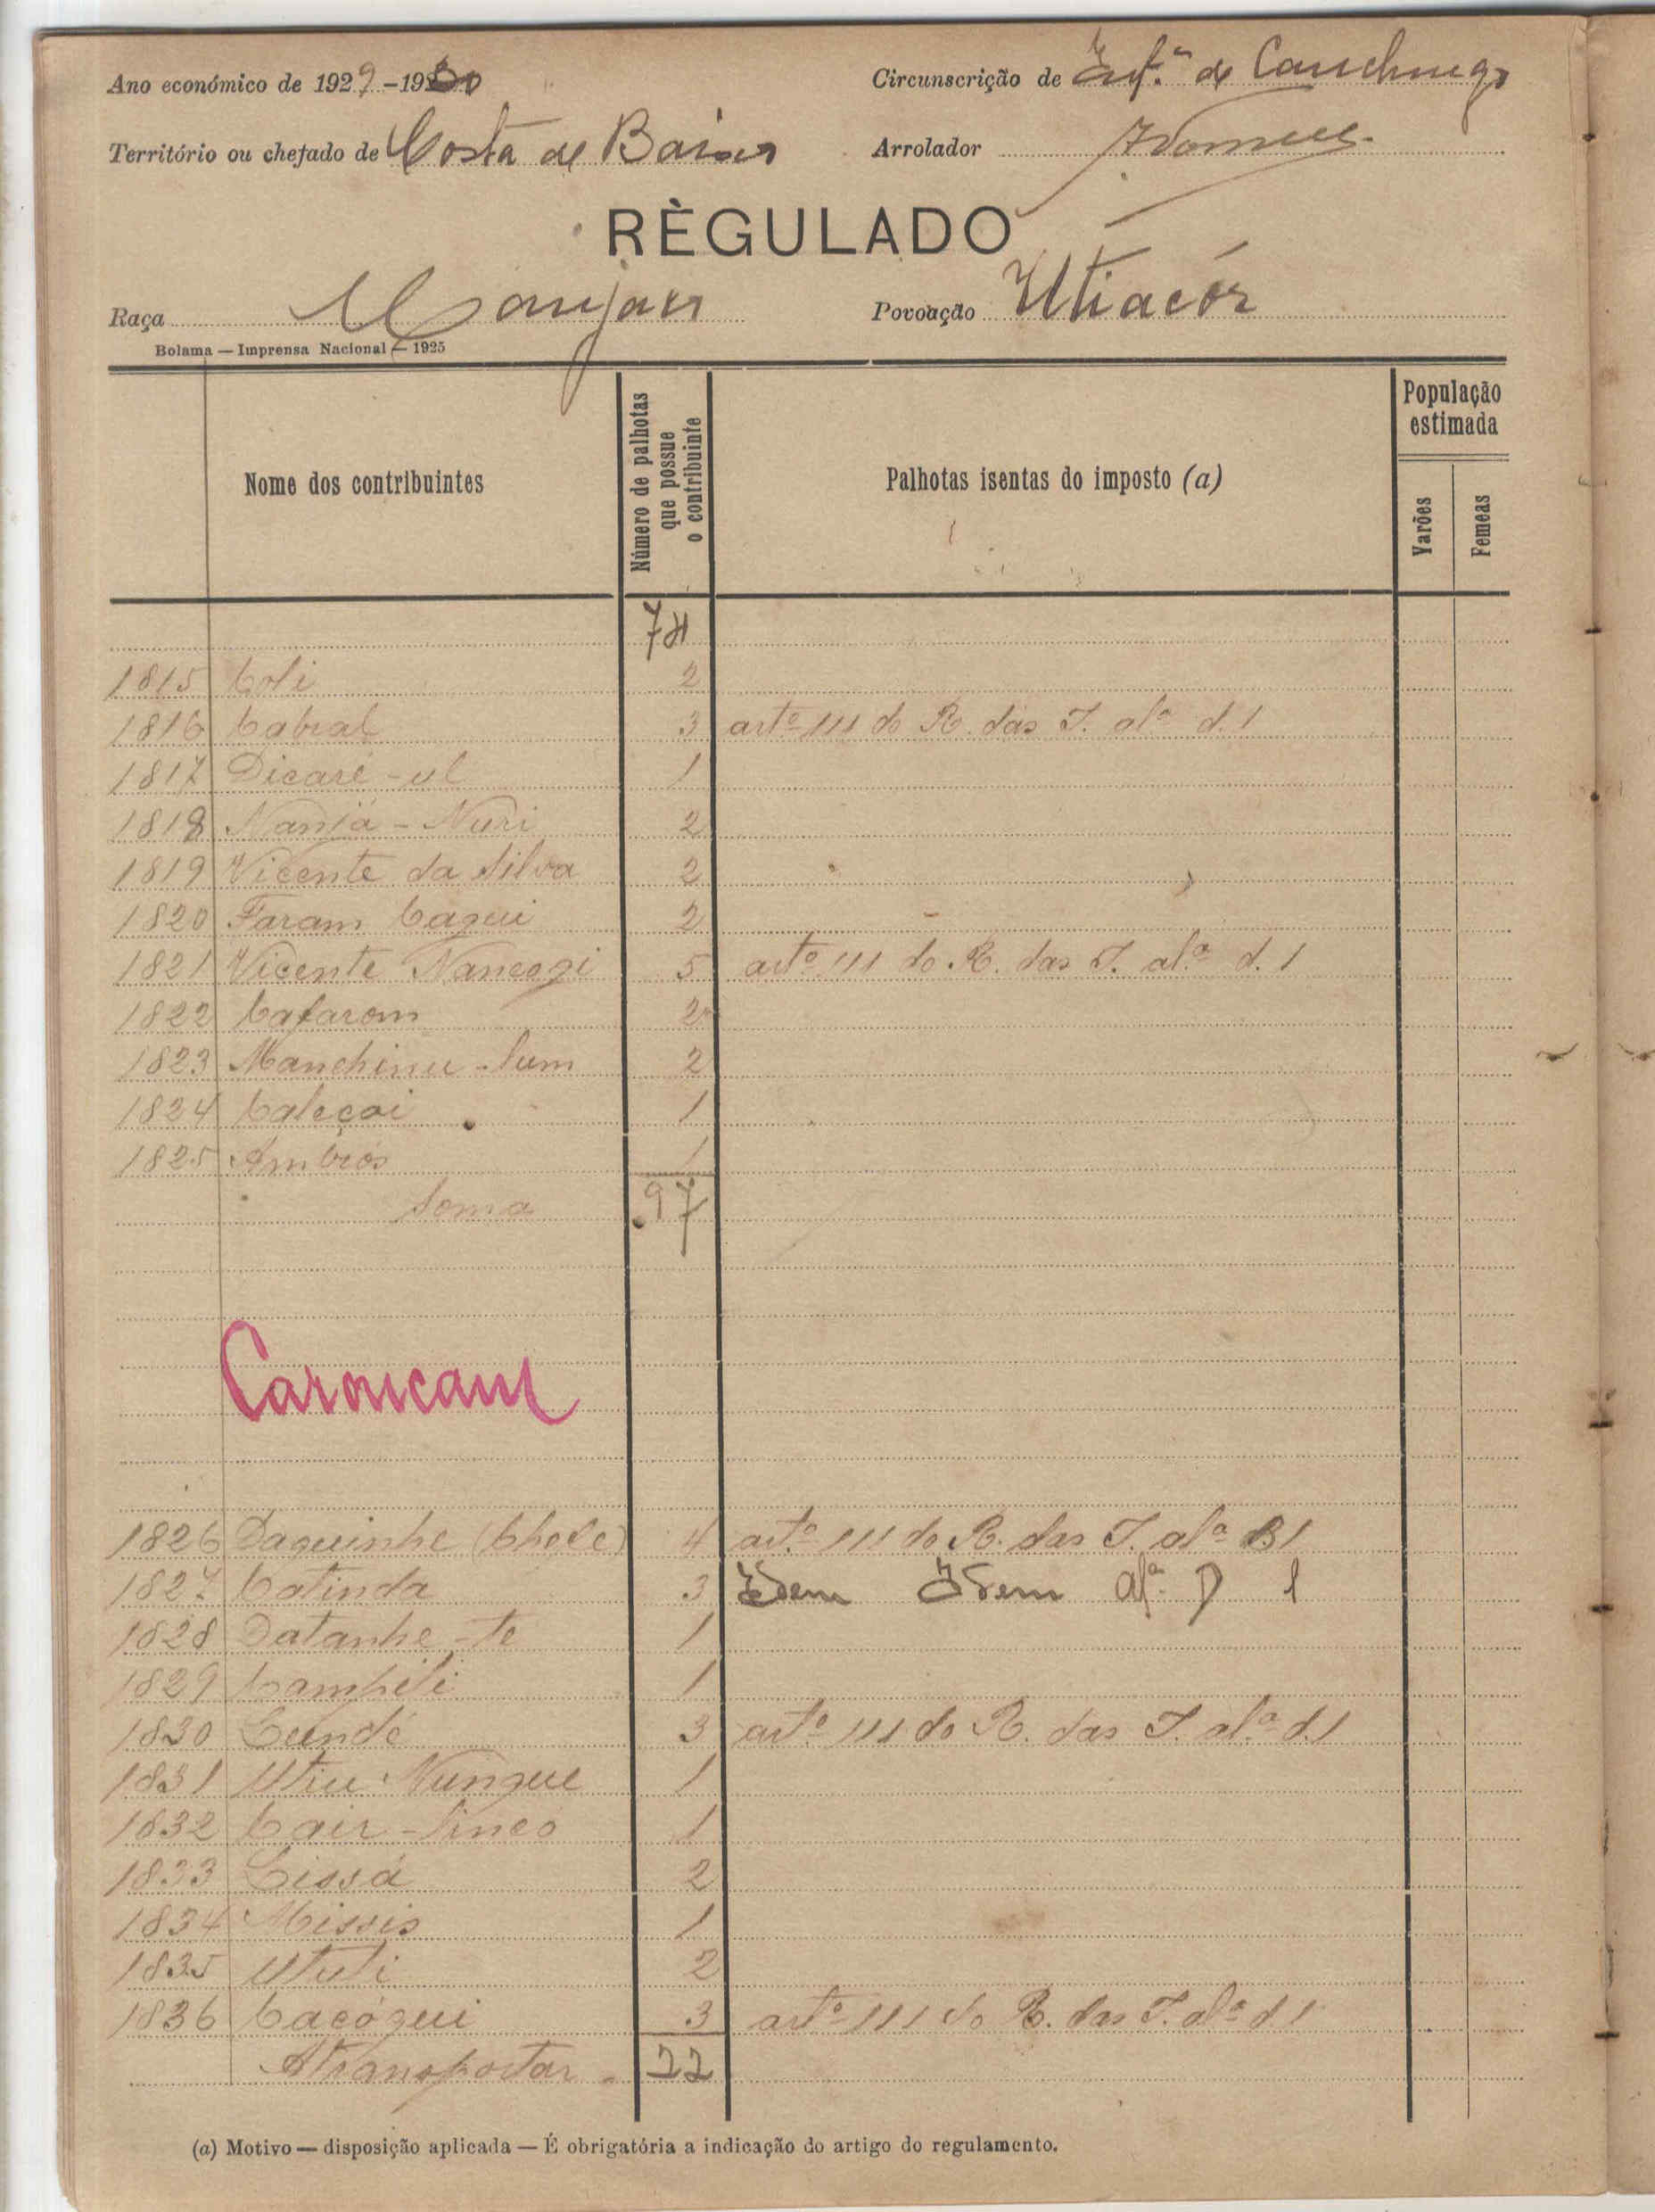 Ano económico de 1929-1930
Circunscrição de Inf.ª de Canchungo
Território ou chefado de Costa de Baixo
Arrolador
RÈGULADO
Raça Manjaca
Povoação Utiacór
Bolama — Imprensa Nacional — 1925
Nome dos contribuintes
Número de palhotas que possue o contribuinte
Palhotas isentas do imposto (a)
População estimada
Varões
Femeas
74
1815 Coli 2
1816 Cabral 3 artº 111 do R. das I. alª d. 1
1817 Dicaré-ul 1
1818 Nanjá - Nuri 2
1819 Vicente da Silva 2
1820 Faram Caqui 2
1821 Vicente Nancogi 5 artº 111 do R. das I. alª d. 1
1822 Cafarom 2
1823 Manchinu-lum 2
1824 Caleçai 1
1825 Ambrós 1
Soma 97
Caroncam
1826 Daquinhe (Chele) 4 artº 111 do R. das I. alª B 1
1827 Catinda 3 Idem Idem alª D 1
1828 Datanhe-te 1
1829 Campili 1
1830 Cundé 3 artº 111 do R. das I. alª d. 1
1831 Utiu Nungue 1
1832 Cair-Sincó 1
1833 Cissá 2
1834 Missis 1
1835 Ututi 2
1836 Cacóqui 3 artº 111 do R. das I. alª d 1
A transportar 22
(a) Motivo — disposição aplicada — É obrigatória a indicação do artigo do regulamento.